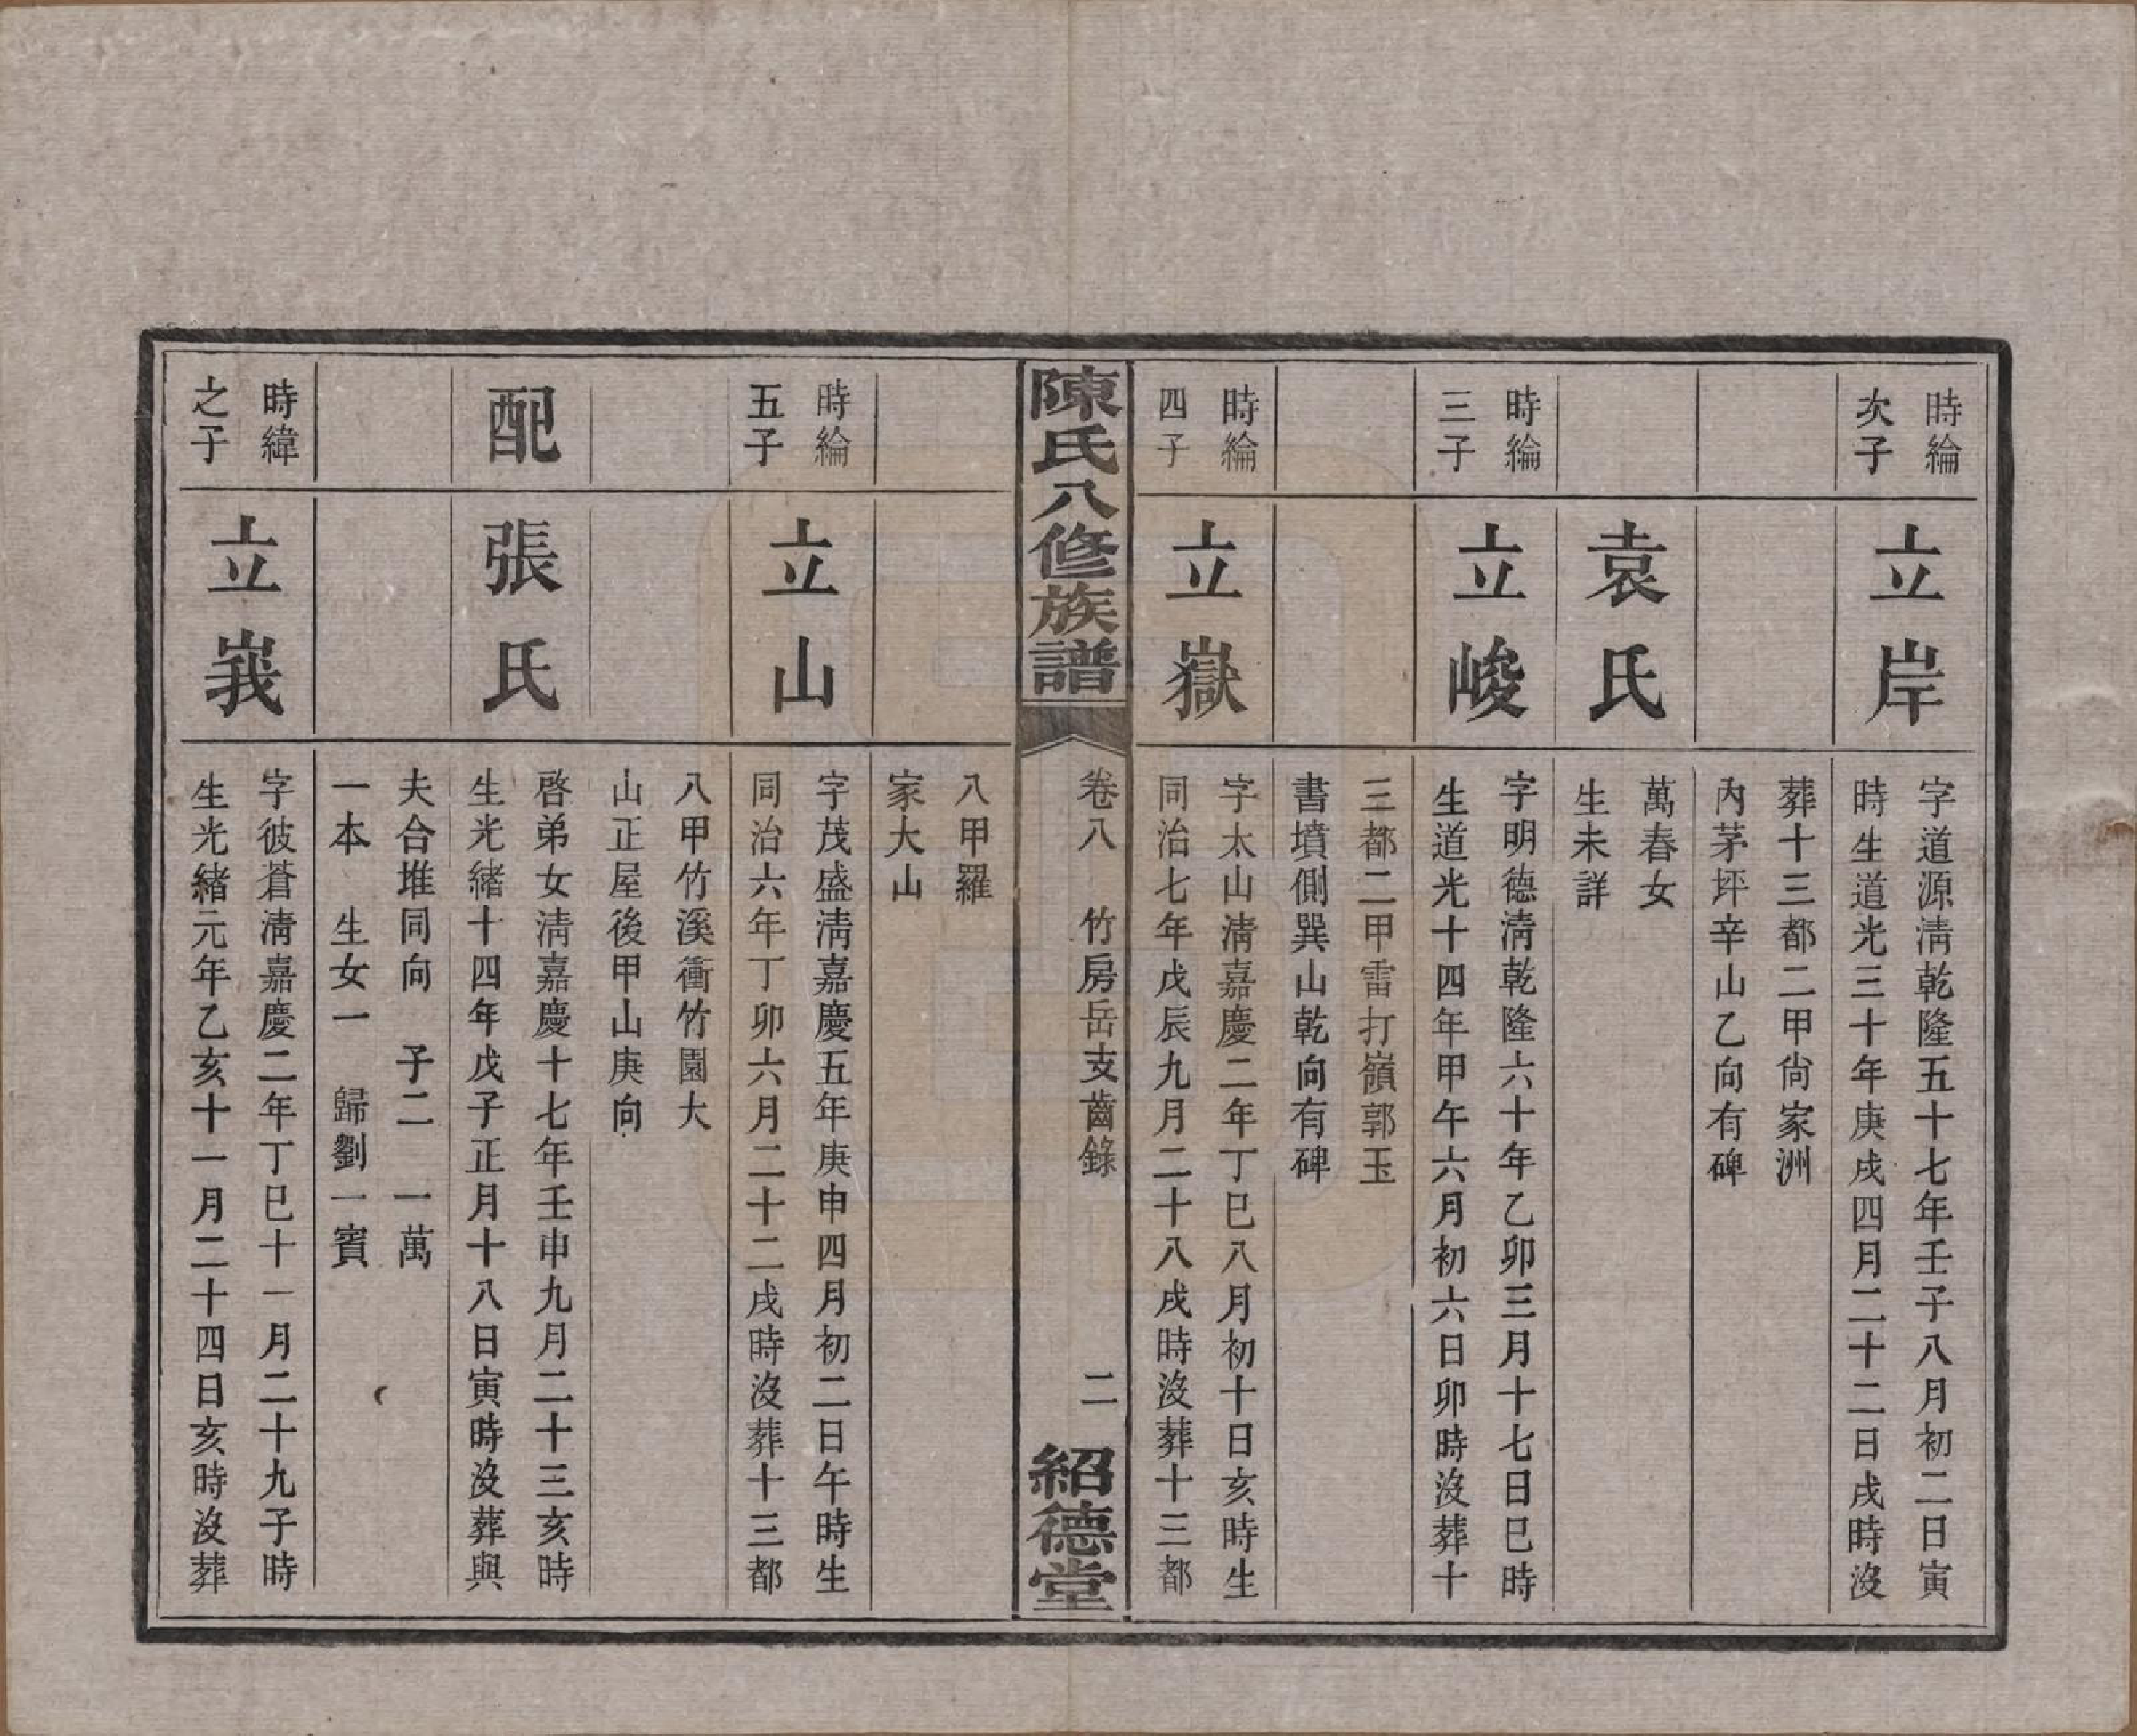 時綸
次子
立岸
字道源淸乾隆五十七年壬子八月初二日寅
時生道光三十年庚戌四月二十二日戌時沒
葬十三都二甲尙家洲
內茅坪辛山乙向有碑
袁氏
萬春女
生未詳
時綸
三子
立峻
字明德淸乾隆六十年乙卯三月十七日巳時
生道光十四年甲午六月初六日卯時沒葬十
三都二甲雷打嶺郭玉
書墳側巽山乾向有碑
時綸
四子
立嶽
字太山淸嘉慶二年丁巳八月初十日亥時生
同治七年戊辰九月二十八戌時沒葬十三都
陳氏八修族譜
卷八 竹房岳支齒錄
二
紹德堂
八甲羅
家大山
時綸
五子
立山
字茂盛淸嘉慶五年庚申四月初二日午時生
同治六年丁卯六月二十二戌時沒葬十三都
八甲竹溪衝竹園大
山正屋後甲山庚向
配
張氏
啓弟女淸嘉慶十七年壬申九月二十三亥時
生光緒十四年戊子正月十八日寅時沒葬與
夫合堆同向 子二 一萬
一本 生女一 歸劉一賓
時緯
之子
立峩
字彼蒼淸嘉慶二年丁巳十一月二十九子時
生光緒元年乙亥十一月二十四日亥時沒葬